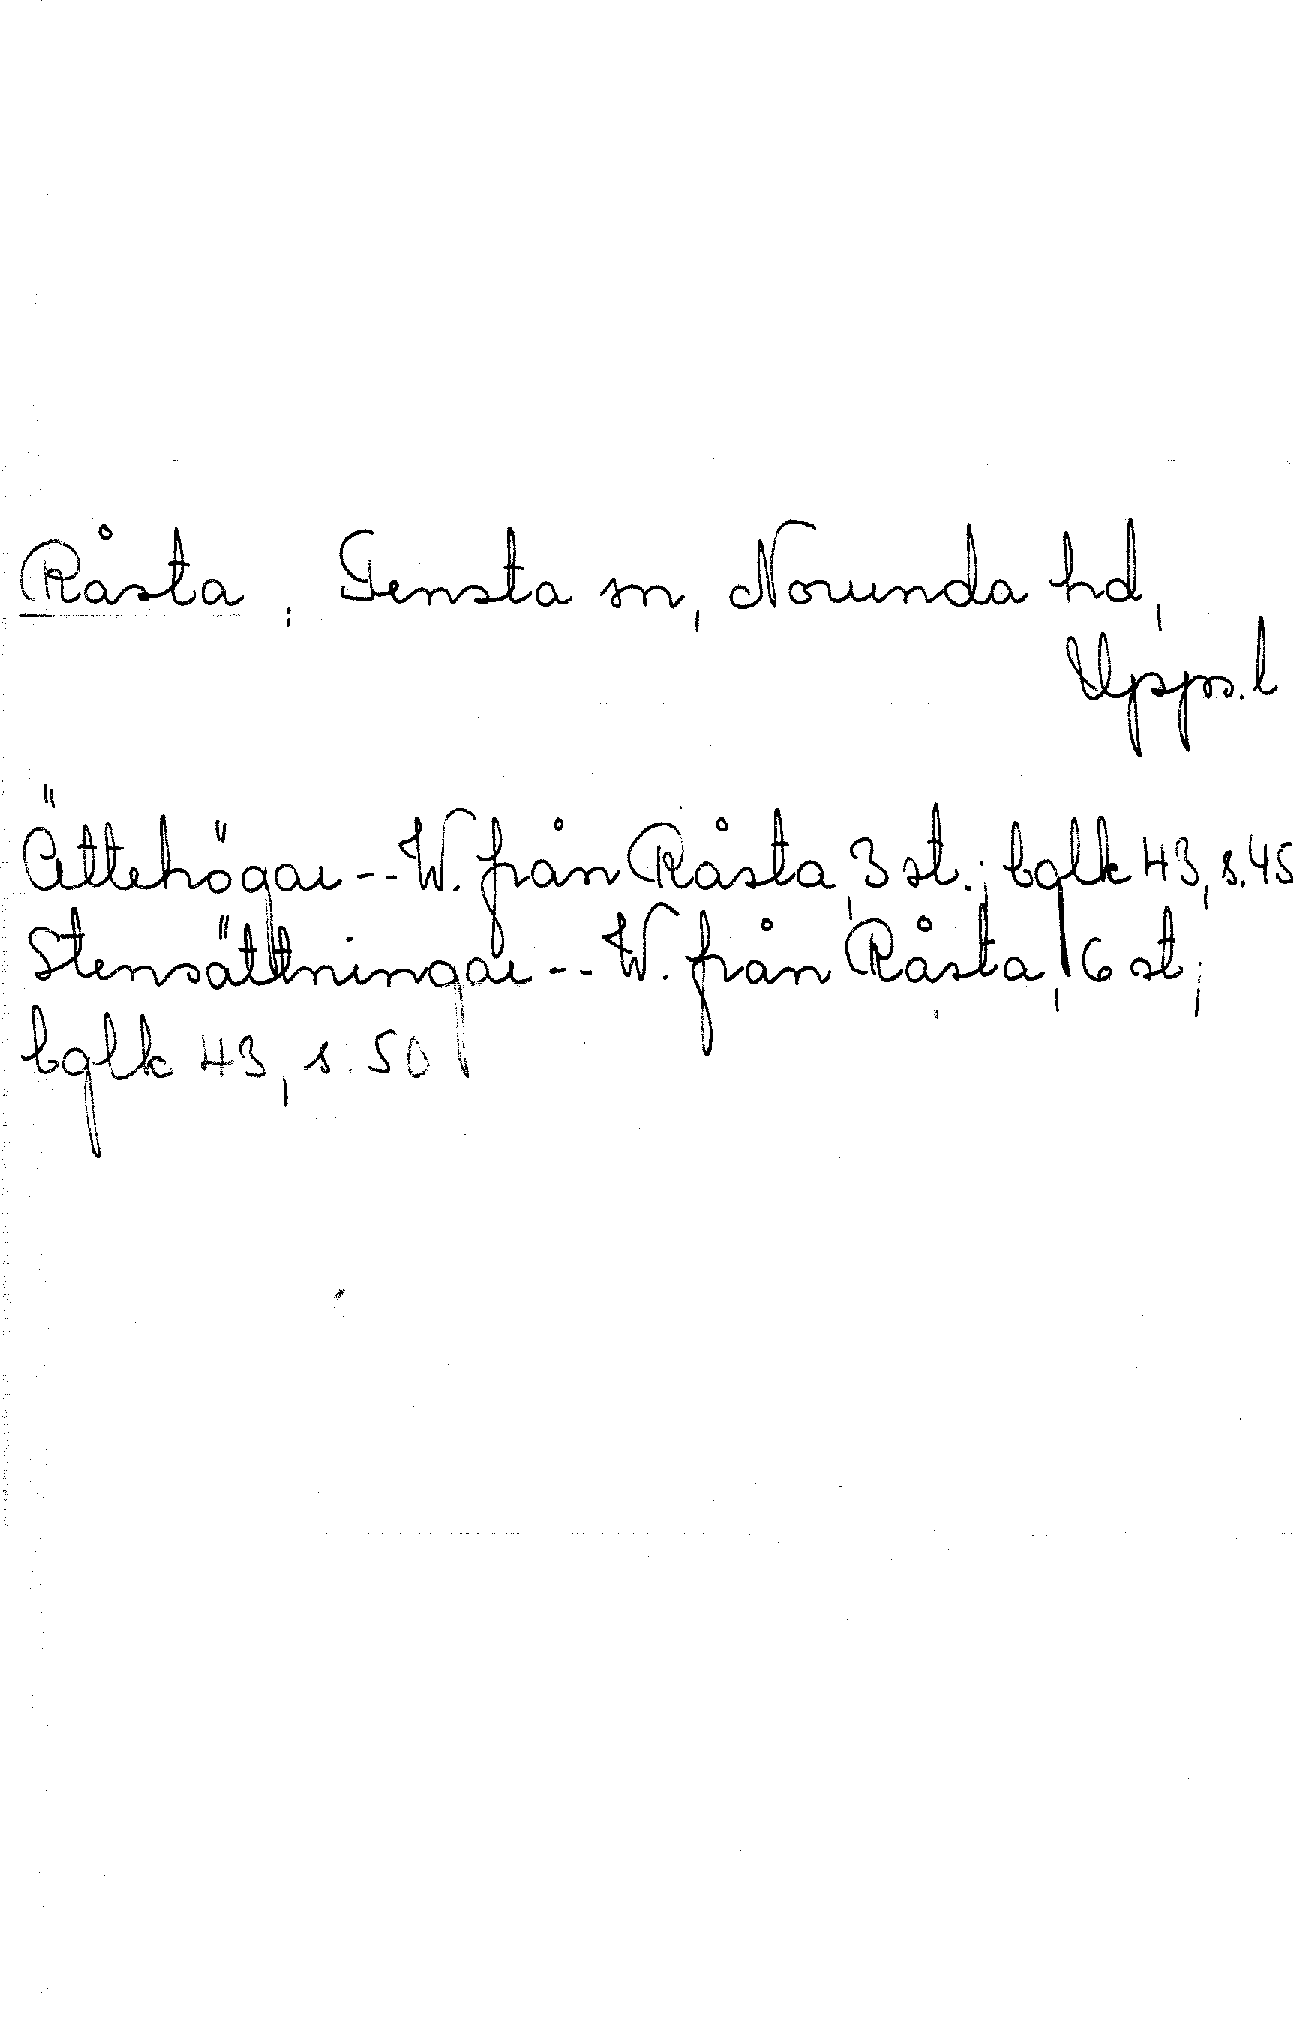 Råsta, Tensta sn, Norunda hd,
Upps. l
Ättehögar -- W. från Råsta, 3 st.; bglk 43, s. 45
Stensättningar -- W. från Råsta, 6 st;
bglk 43, s. 50